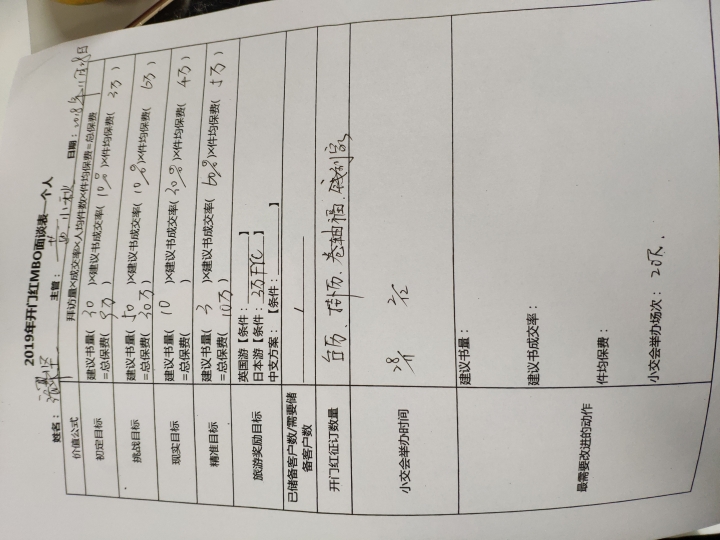 2019年开门红MBO面谈表—个人
姓名： 主管： 小秋 日期：2018年11月28日
价值公式 拜访量×成交率×人均件数×件均保费=总保费
初定目标 建议书量( 30 )×建议书成交率( 10% )×件均保费( 3万 )
=总保费( 9万 )
挑战目标 建议书量( 50 )×建议书成交率( 10% )×件均保费( 6万 )
=总保费( 30万 )
现实目标 建议书量( 10 )×建议书成交率( 20% )×件均保费( 4万 )
=总保费( )
精准目标 建议书量( 3 )×建议书成交率( 60% )×件均保费( 5万 )
=总保费( 10万 )
旅游奖励目标 英国游【条件： 】
日本游【条件：3万FYC】
中支方案：【条件： 】
已储备客户数/需要储备客户数 /
开门红征订数量 台历、挂历、卷轴福、
小交会举办时间
最需要改进的动作 建议书量：
建议书成交率：
件均保费：
小交会举办场次：20次.